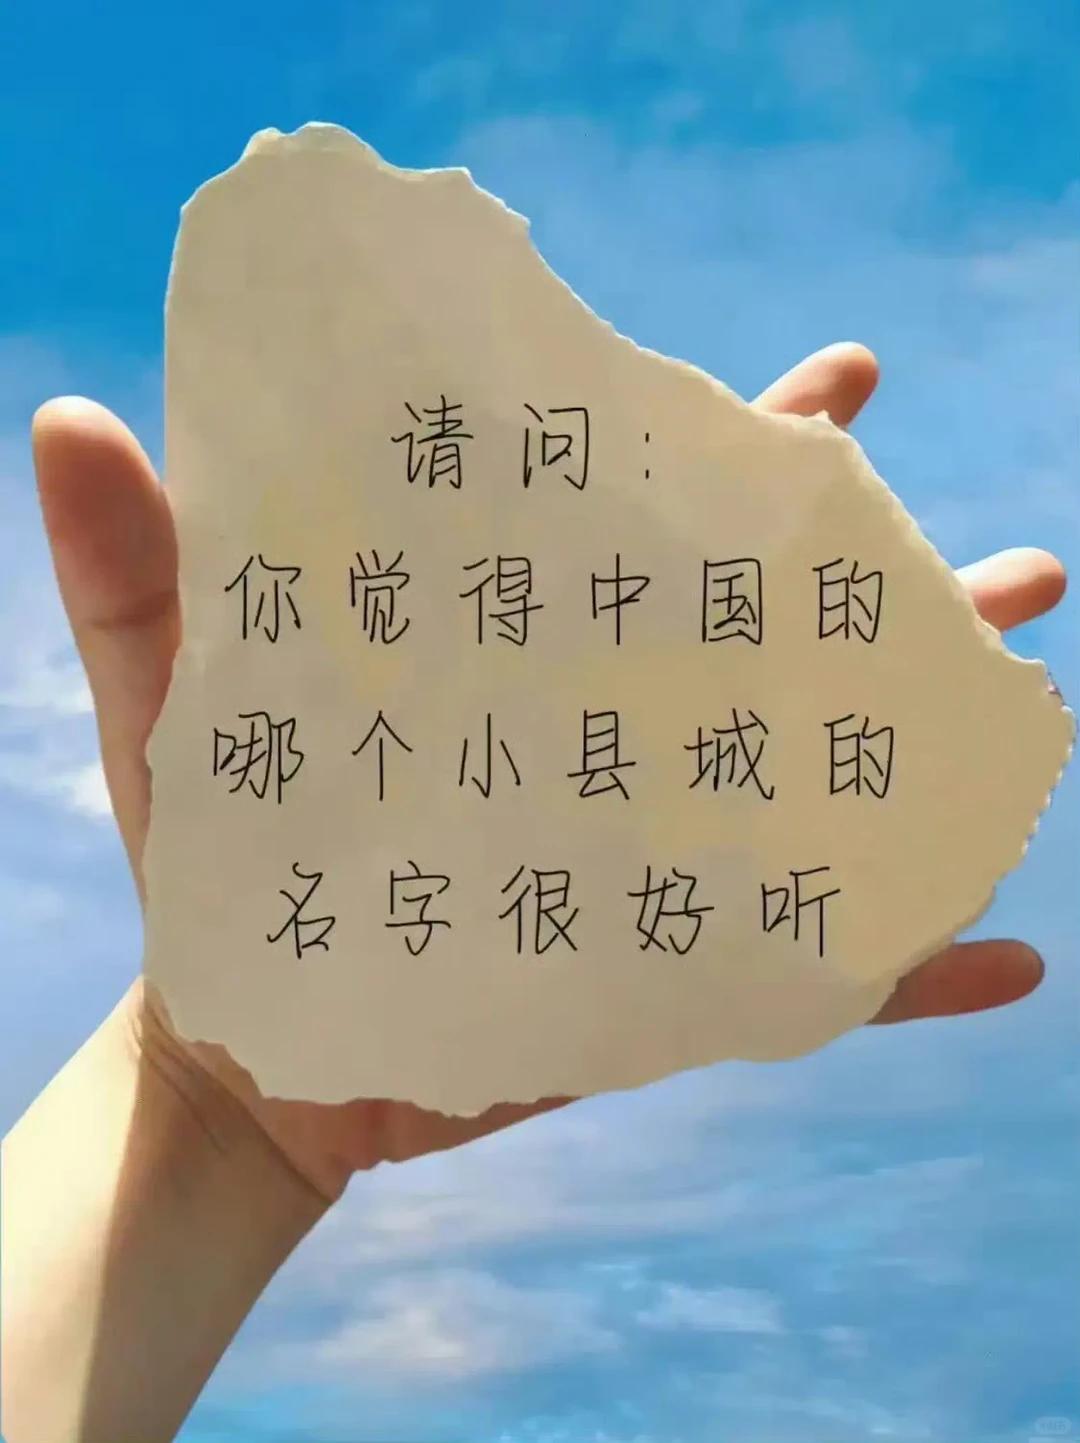 请问：
你觉得中国的
哪个小县城的
名字很好听